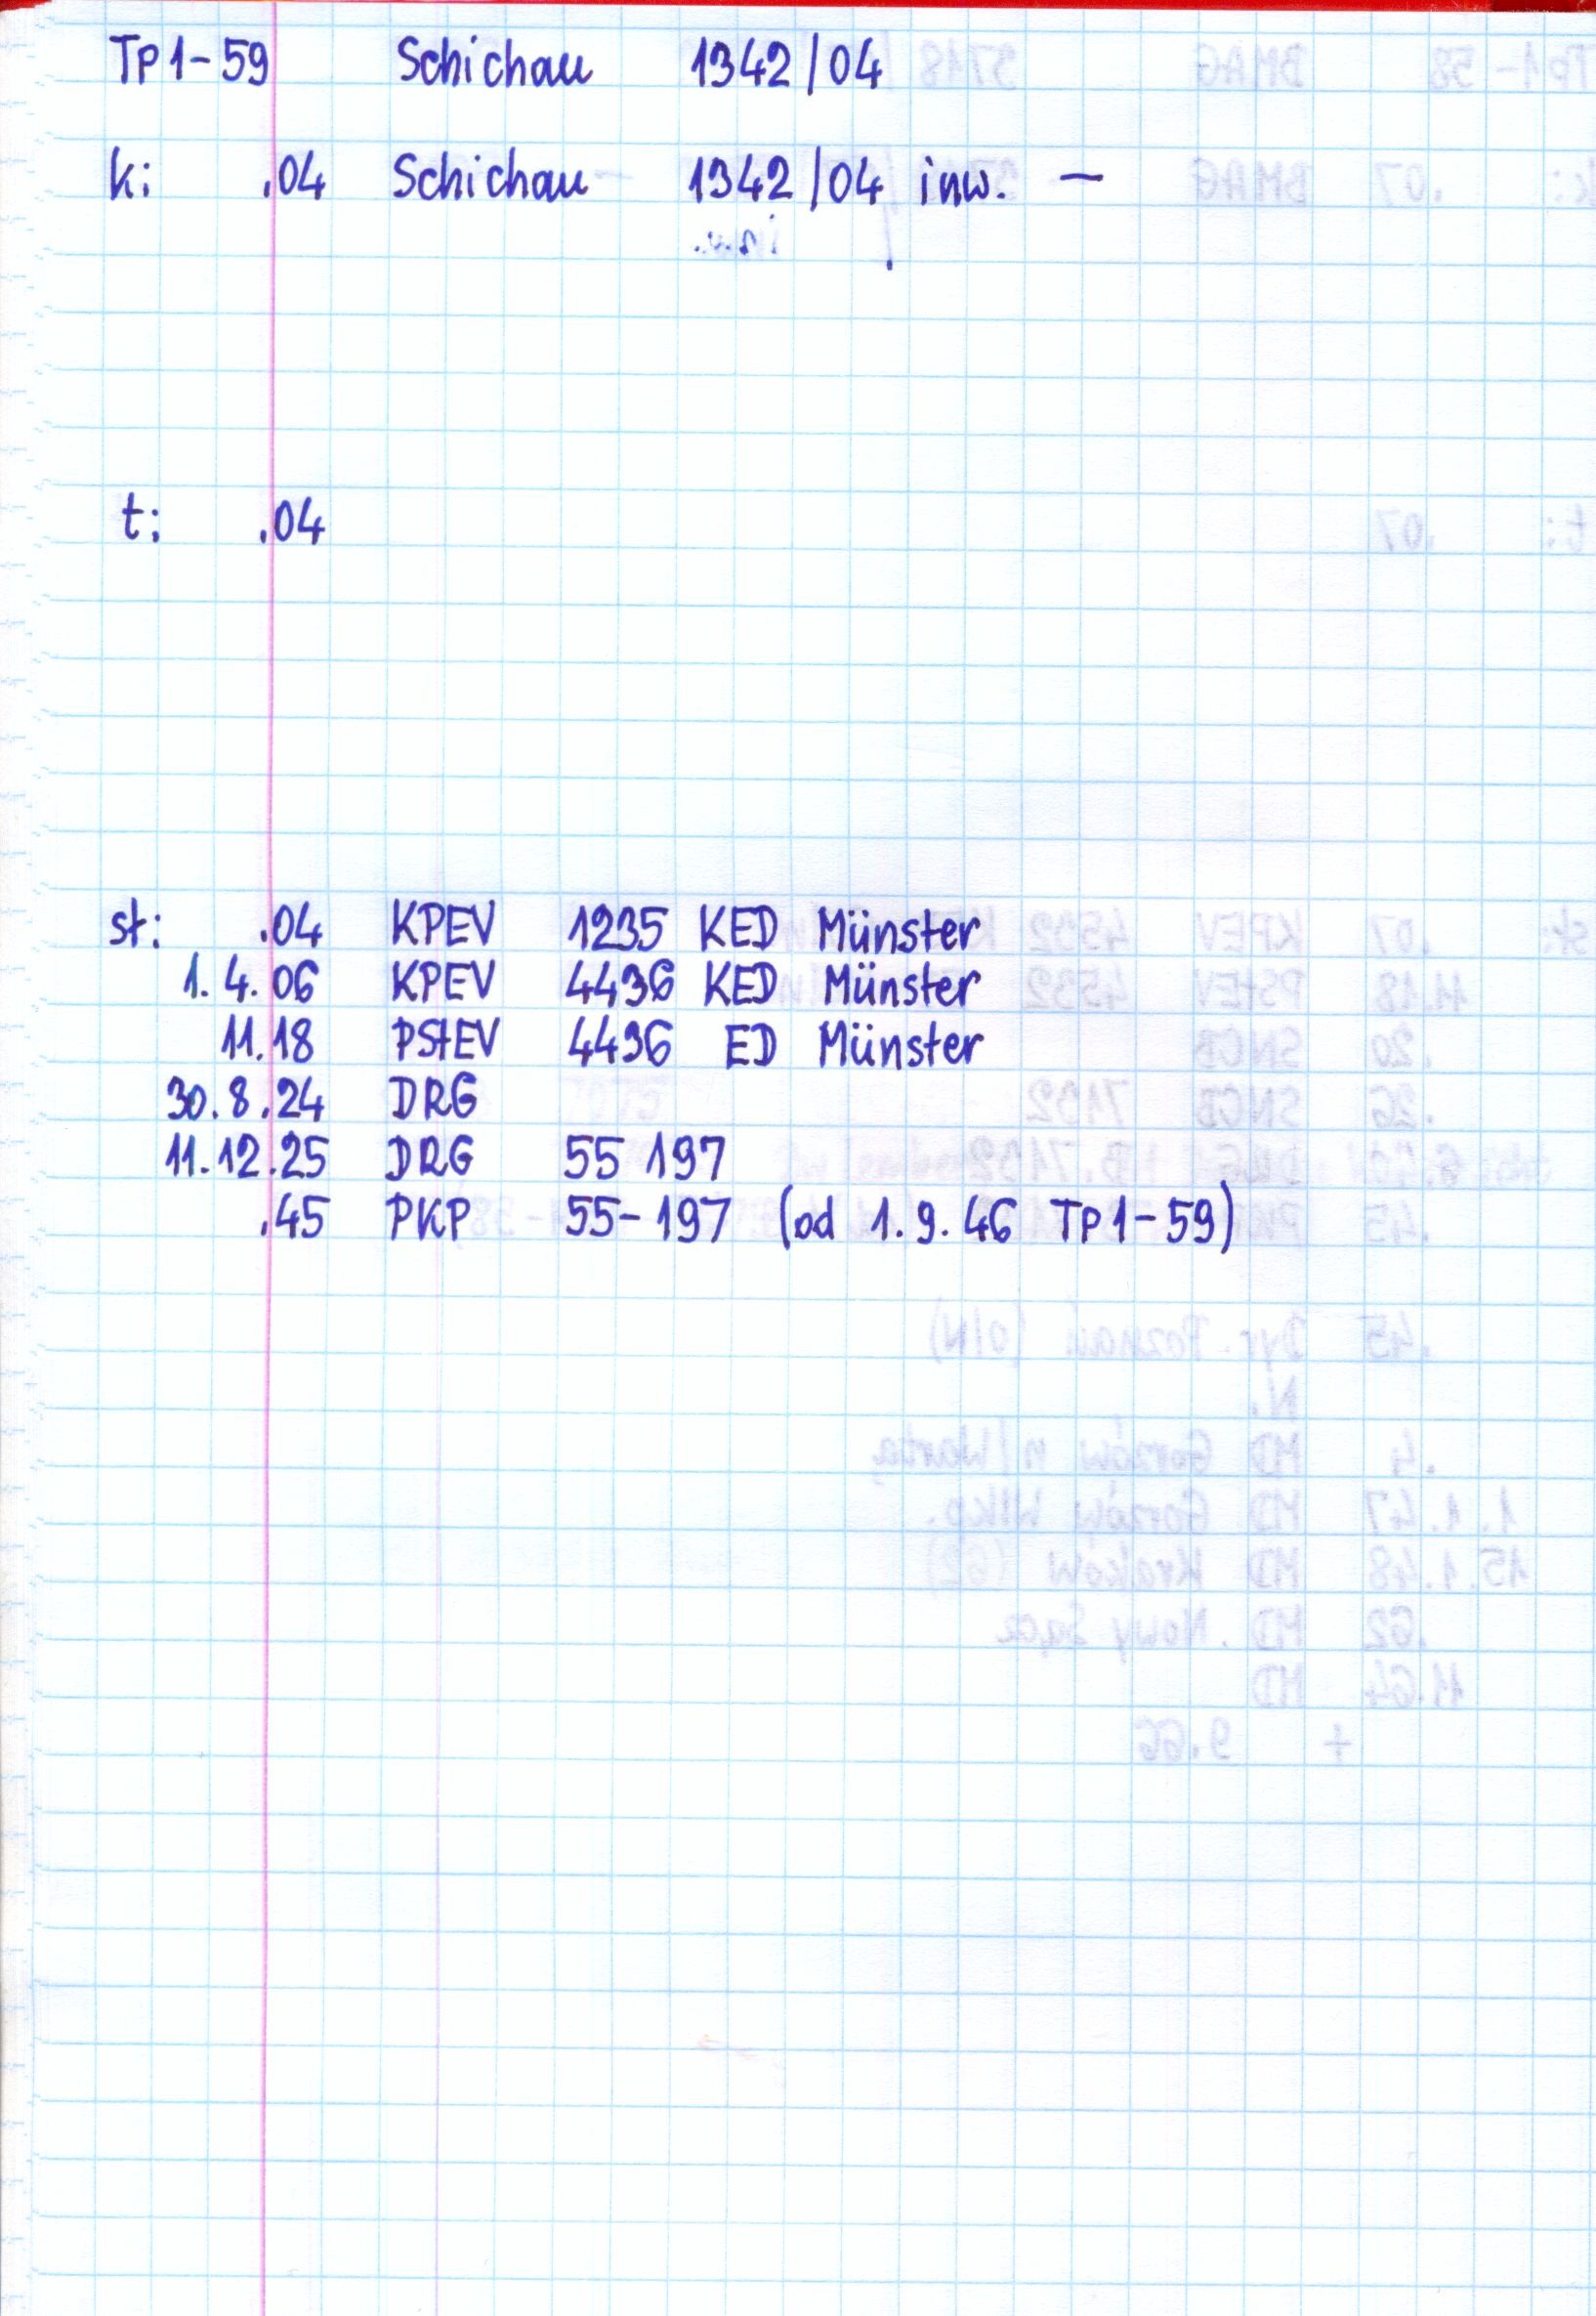 Tp1-59 Schichau 1342/04
k: .04 Schichau 1342/04 inw. —
t: .04
st: .04 KPEV 1235 KED Münster
1.4.06 KPEV 4436 KED Münster
11.18 PStEV 4436 ED Münster
30.8.24 DRG
11.12.25 DRG 55 197
.45 PKP 55-197 (od 1.9.46 Tp1-59)